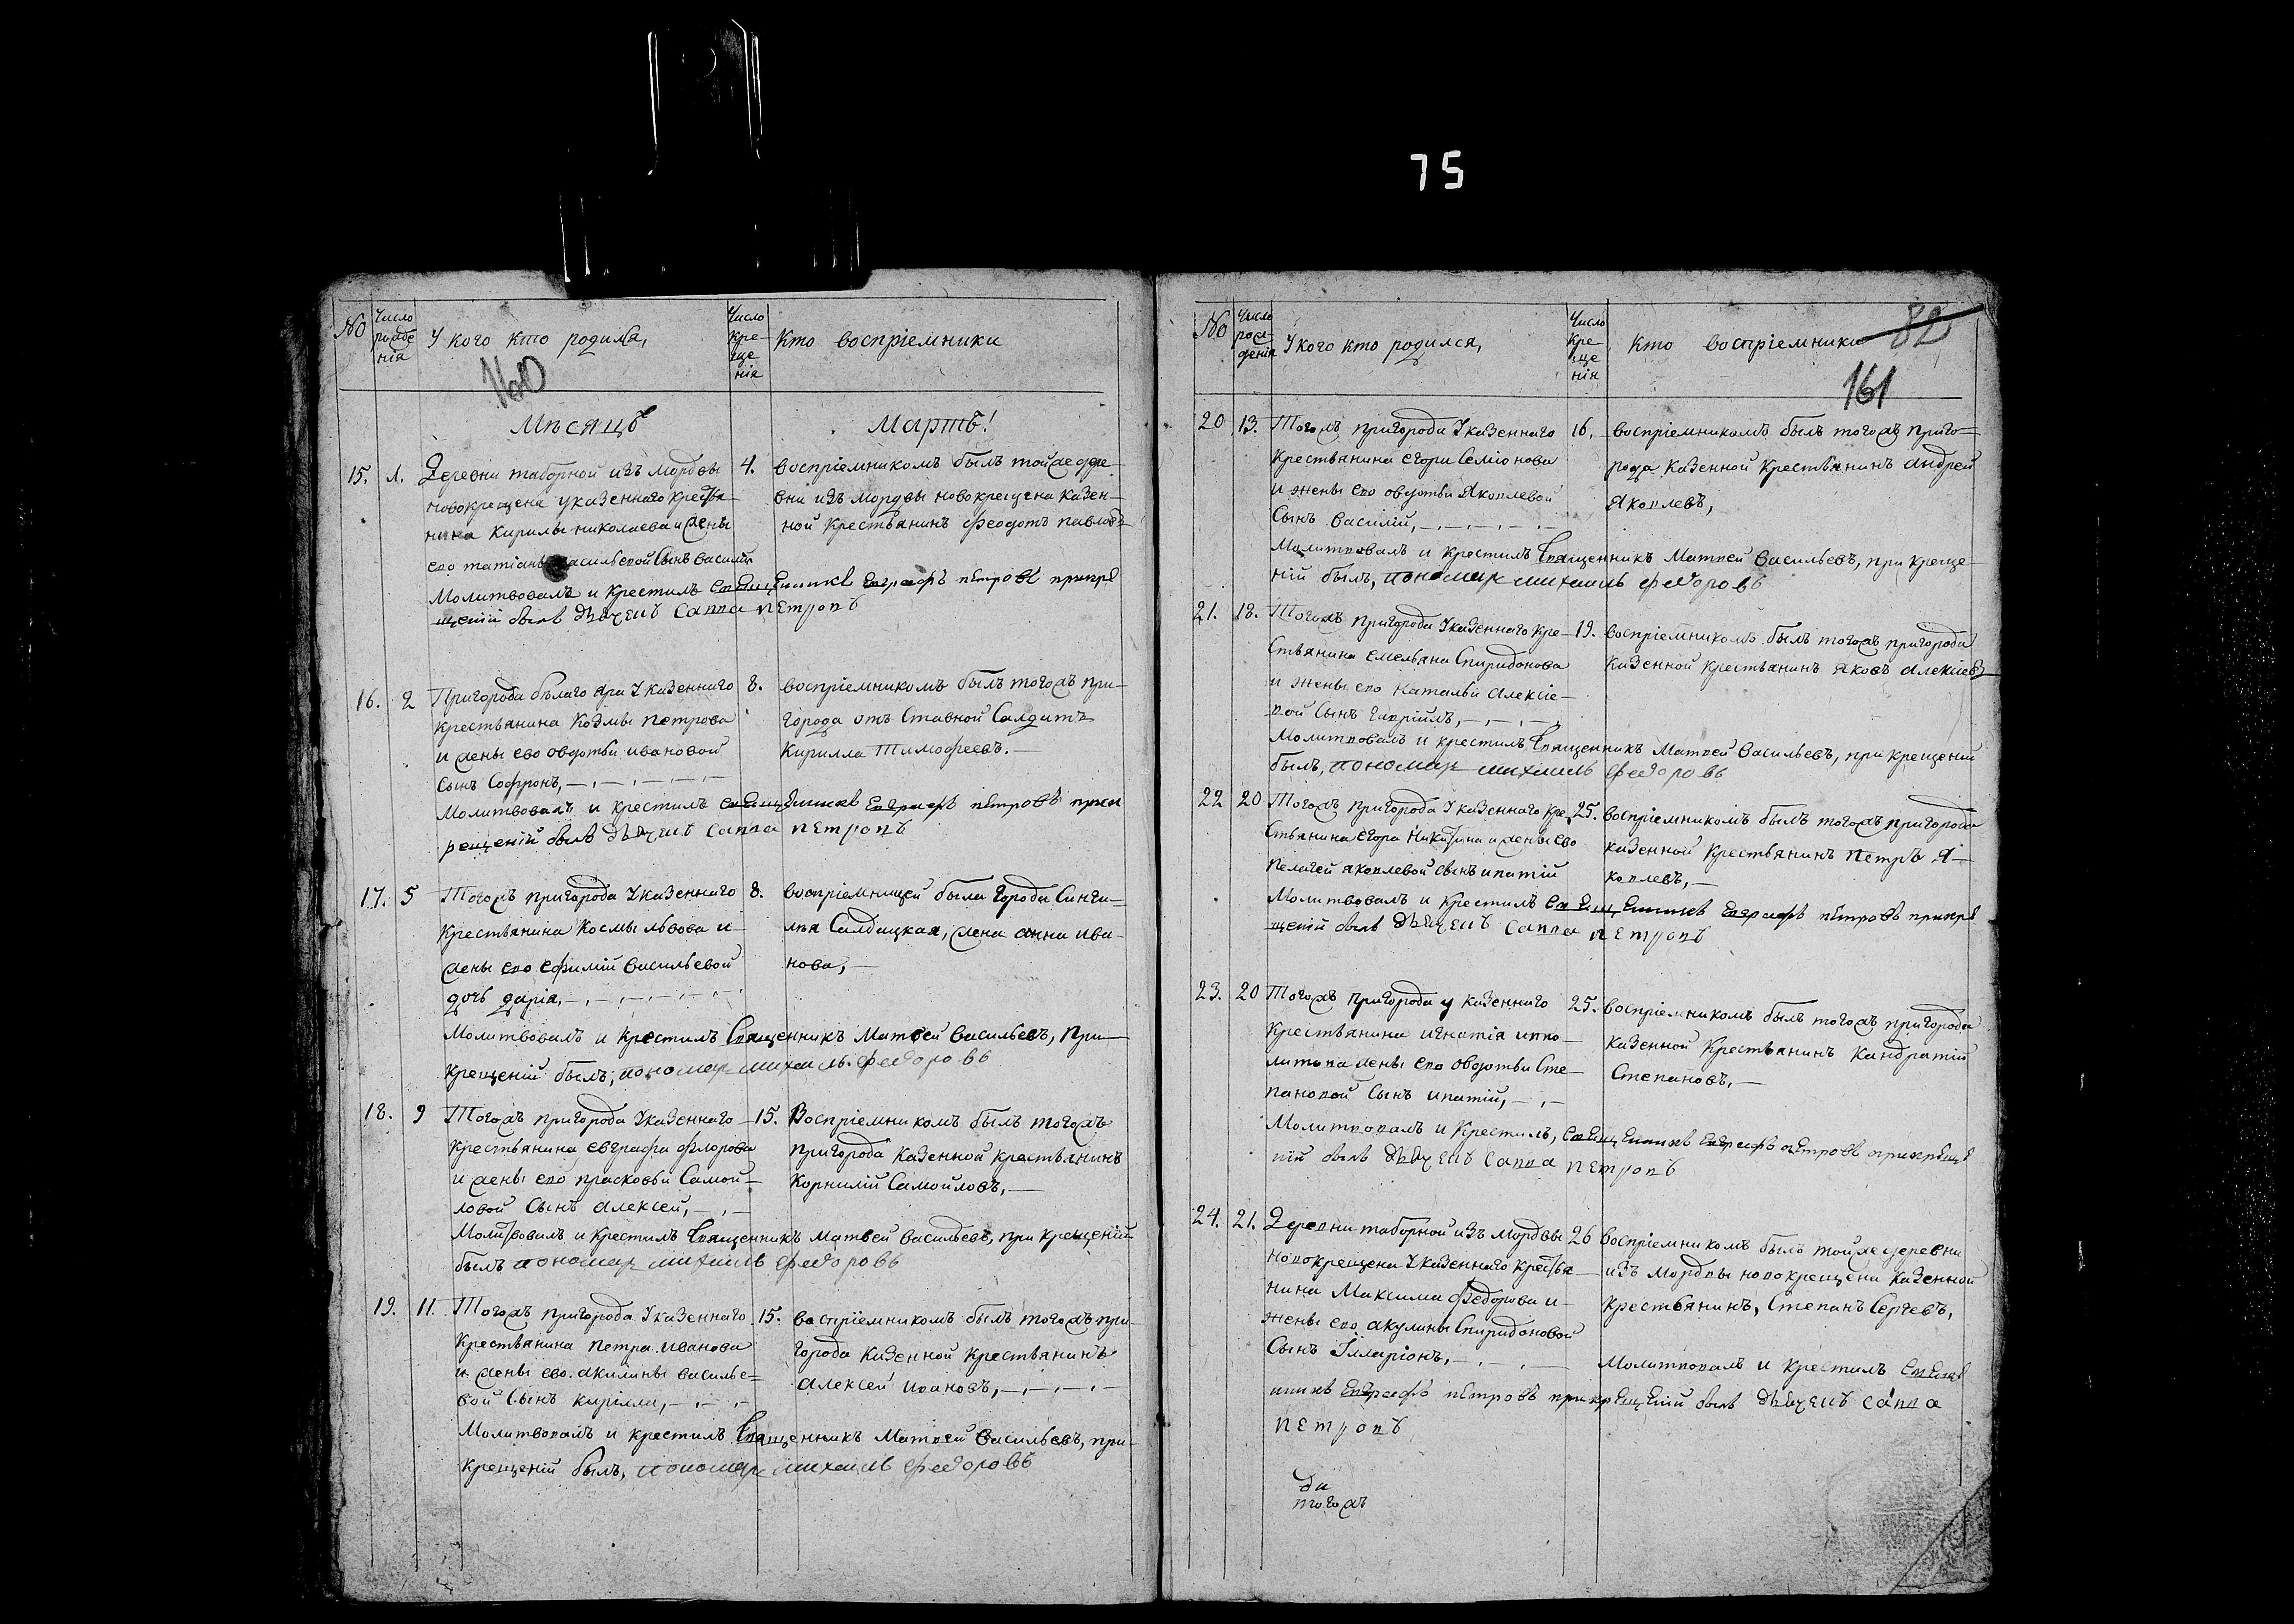 75
№
Число рождения
У кого кто родился,
Число крещенія
Кто воспріемники
160
Мѣсяцъ
Мартъ!
15. 1. Деревни таборной изъ мордвы
новокрещена указеннаго крестья-
нина Кирилы николаева и жены
ево татіаны васильевой сынъ василій
4. воспріемникомъ былъ тойже дере
вни изъ мордвы новокрещена казен-
ной крестьянинъ феодотъ павловъ
Молитвовалъ и крестилъ священникъ евграфъ петровъ прикре
щеніи былъ дьячекъ савва петровъ
16. 2 Пригорода бѣлаго яра Указеннаго
крестьянина Козмы петрова
и жены ево овдотьи ивановой
сынъ Софронъ,
8. воспріемникомъ былъ тогожъ при-
города отъ ставной салдатъ
Кирилла Тимофеевъ.
Молитвовалъ и крестилъ священникъ евграфъ петровъ прик
рещеніи былъ дьячекъ савва петровъ
17. 5 Тогожъ пригорода Указеннаго
крестьянина космы львова и
жены ево ефиміи васильевой
дочь дарія,
8. воспріемницей была города Синги-
лея Салдацкая, жена анна ива-
нова,
Молитвовалъ и крестилъ священникъ Матвей васильевъ, при
крещеніи былъ, пономарь михаилъ федоровъ
18. 9 Тогожъ пригорода Указеннаго
крестьянина евграфа флорова
и жены ево прасковьи Самой-
ловой сынъ алексей,
15. Воспріемникомъ былъ тогожъ
пригорода казенной крестьянинъ
Корнилій Самойловъ,
Молитвовалъ и крестилъ священникъ матвей васильевъ, при крещеніи
былъ пономарь михаилъ федоровъ
19. 11. Тогожъ пригорода Указеннаго
крестьянина петра иванова
и жены ево акилины василье=
вой сынъ кирилла,
15. воспріемникомъ былъ тогожъ при-
города казенной крестьянинъ
алексей ивановъ,
Молитвовалъ и крестилъ священникъ Матвей васильевъ, при-
крещеніи былъ, пономарь михаилъ федоровъ
№
Число рожденія
У кого кто родился,
Число крещенія
Кто воспріемники
82
161
20 13. Тогожъ пригорода Указеннаго
крестьянина егора Семіонова
и жены ево овдотьи Яковлевой
Сынъ василій,
16. воспріемникомъ былъ тогожъ приго=
рода казенной крестьянинъ андрей
Яковлевъ,
Молитвовалъ и крестилъ священникъ Матвей васильевъ, при креще-
ніи былъ, пономарь михаилъ федоровъ
21. 18. Тогожъ пригорода Указеннаго кре-
стьянина емельяна Спиридонова
и жены ево натальи алексіе-
вой сынъ гавріилъ,
19. воспріемникомъ былъ тогожъ пригорода
казенной крестьянинъ яковъ алексіевъ
Молитвовалъ и крестилъ священникъ Матвей васильевъ, при крещеніи
былъ, пономарь михаилъ федоровъ
22 20 Тогожъ пригорода Указеннаго кре
стьянина егора Никитина и жены ево
пелагеи яковлевой сынъ ипатій
25. воспріемникомъ былъ тогожъ пригорода
казенной крестьянинъ петръ я-
ковлевъ,
Молитвовалъ и крестилъ священникъ евграфъ петровъ прикре
щеніи былъ дьячекъ савва петровъ
23. 20 Тогожъ пригорода у казеннаго
крестьянина игнатія иппо-
литова жены ево овдотьи Сте-
пановой сынъ ипатій,
25. воспріемникомъ былъ тогожъ пригорода
казенной крестьянинъ Кандратій
Степановъ,
Молитвовалъ и крестилъ, священникъ евграфъ петровъ прикреще
ніи былъ дьячекъ савва петровъ
24. 21. Деревни таборной изъ мордвы
новокрещена Указеннаго крестья
нина Максима федорова и
жены ево акулины Спиридоновой
Сынъ Илларіонъ,
26 воспріемникомъ былъ тойже деревни
изъ мордвы новокрещена казенной
крестьянинъ, Степанъ Сергеевъ,
Молитвовалъ и крестилъ священ
никъ евграфъ петровъ прикрещеніи былъ дьячекъ савва
петровъ
тогожъ